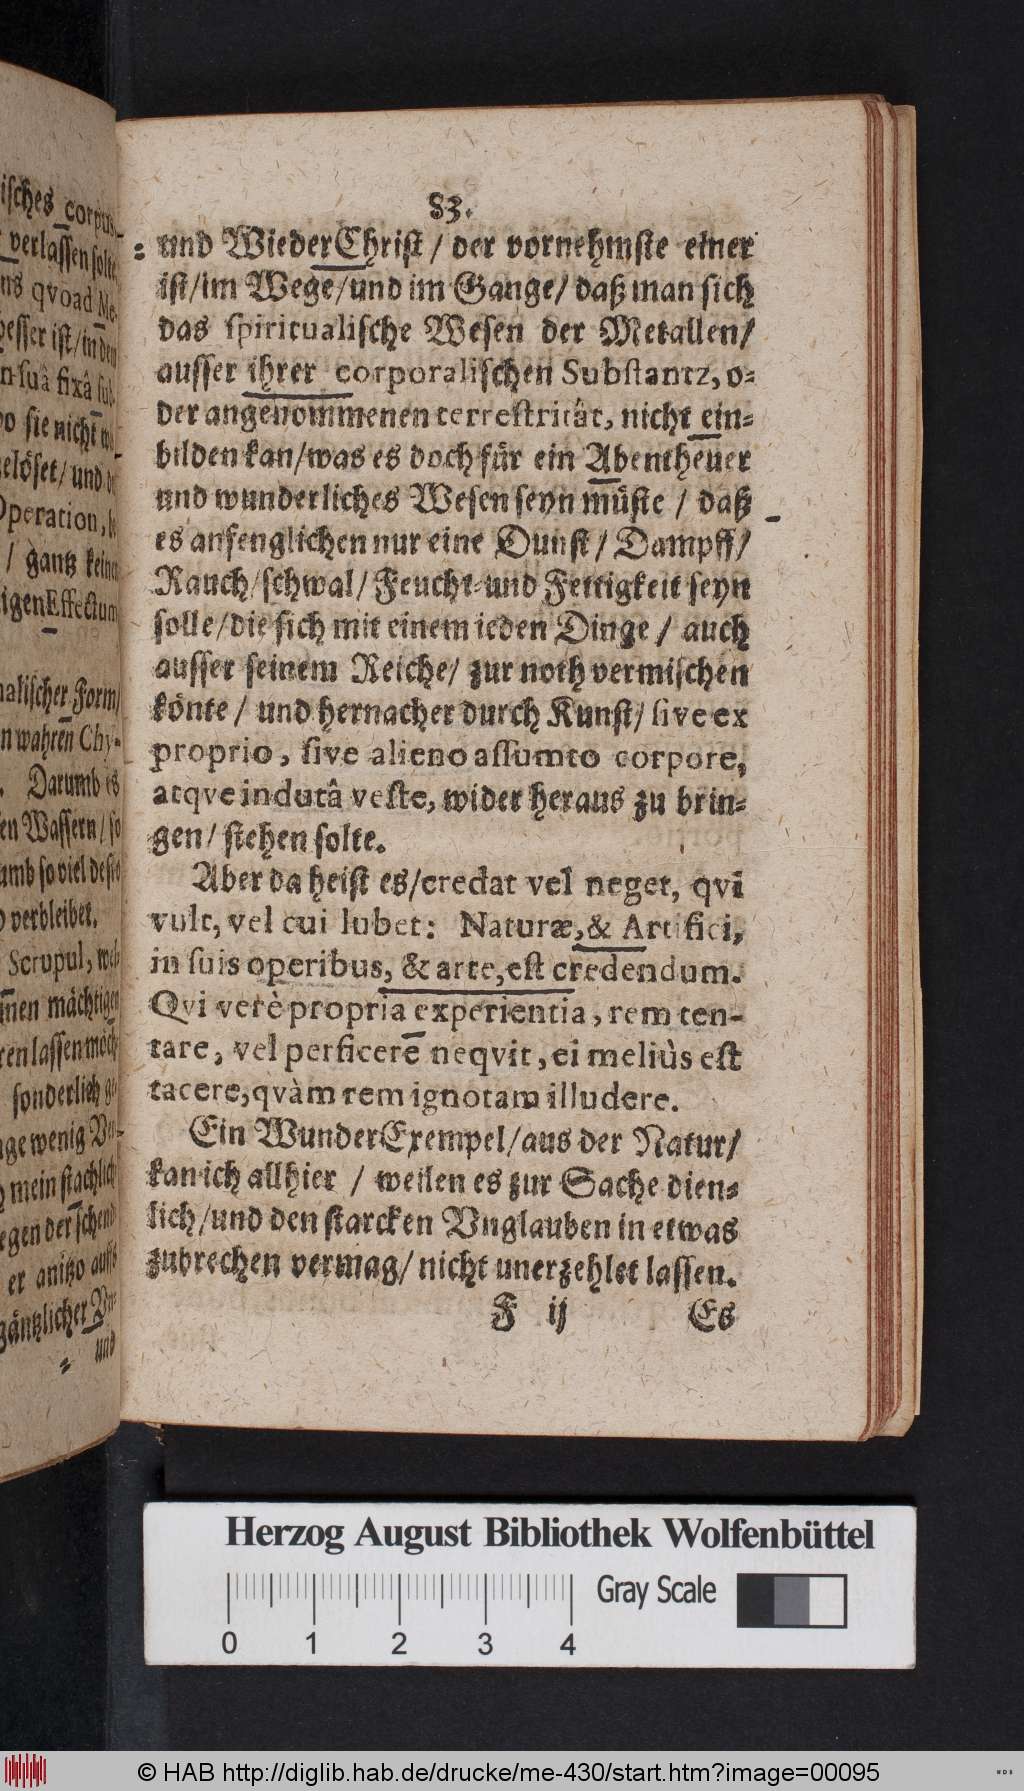 isches corpus
verlassen solte
ns qvoad Me-
besser ist/in dem
n suâ fixâ sub-
o sie nicht
gelöset/und
Operation,
/ gantz keinen
igen Effectum
nalischer Form/
n wahren Chy-
Darumb is
en Wassern/so
umb so viel desto
verbleibet.
Scrupul, wel-
nnen mächtigen
ren lassen möch
sonderlich
ge wenig Ver-
mein stachlich
egen der schend
er anitzo auff
gäntzlicher Vn-
und
83.
und WiederChrist/ der vornehmste einer
ist/im Wege/und im Gange/ daß man sich
das spiritualische Wesen der Metallen/
ausser ihrer corporalischen Substantz, o-
der angenommenen terrestritât, nicht ein-
bilden kan/was es doch für ein Abentheuer
und wunderliches Wesen seyn müste / daß
es anfenglichen nur eine Dunst/ Dampff/
Rauch/schwal/ Feucht-und Fettigkeit seyn
solle/die sich mit einem ieden Dinge / auch
ausser seinem Reiche/ zur noth vermischen
könte/ und hernacher durch Kunst/ sive ex
proprio, sive alieno assumto corpore,
atqve indutâ veste, wider heraus zu brin-
gen/ stehen solte.
Aber da heist es/credat vel neget, qvi
vult, vel cui lubet: Naturæ, & Artifici,
in suis operibus, & arte, est credendum.
Qvi verè propria experientia, rem ten-
tare, vel perficere neqvit, ei meliùs est
tacere, qvàm rem ignotam illudere.
Ein WunderExempel/aus der Natur/
kan ich allhier / weilen es zur Sache dien-
lich/und den starcken Vnglauben in etwas
zubrechen vermag/ nicht unerzehlet lassen.
F ij Es
Herzog August Bibliothek Wolfenbüttel
Gray Scale
0 1 2 3 4
© HAB http://diglib.hab.de/drucke/me-430/start.htm?image=00095